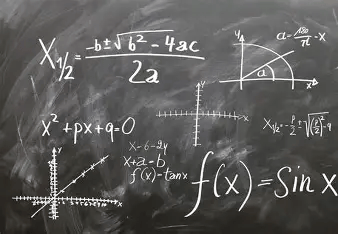 X₁/₂ = (-b ± √(b² - 4ac)) / 2a
a = √80/π - x
y
x
a
x² + px + q = 0
y
x
x₁/₂ = -p/2 ± √((p/2)² - q
x - 6 - 2y
x + a = b
f(x) = tan x
y
x
f(x) = Sin x